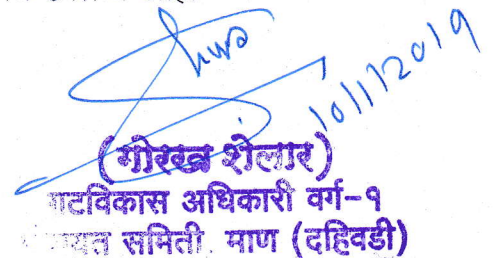 10/1/2019
(गोरख शेलार)
गटविकास अधिकारी वर्ग-१
समिती माण (दहिवडी)